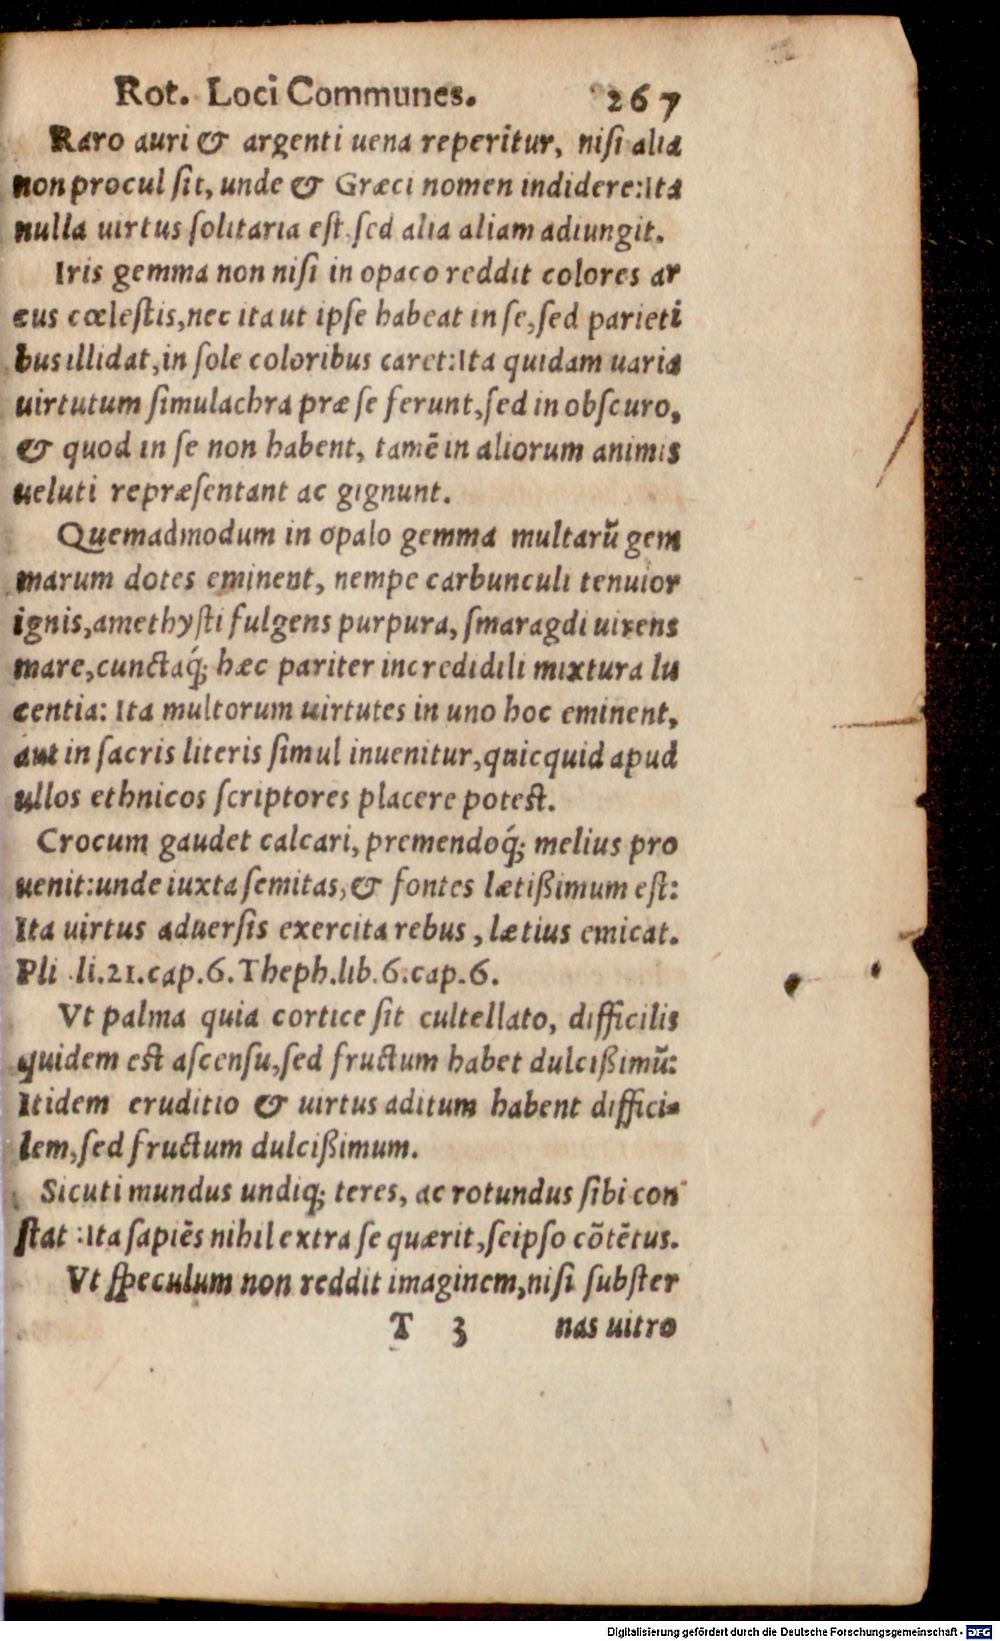 Rot. Loci Communes. 267
Raro auri & argenti uena reperitur, niſi alia
non procul ſit, unde & Græci nomen indidere:Ita
nulla uirtus ſolitaria eſt ſed alia aliam adiungit.
Iris gemma non niſi in opaco reddit colores ar
cus cœleſtis,nec ita ut ipſe habeat in ſe,ſed parieti
bus illidat,in ſole coloribus caret:Ita quidam uaria
uirtutum ſimulachra præ ſe ferunt,ſed in obſcuro,
& quod in ſe non habent, tamē in aliorum animis
ueluti repræſentant ac gignunt.
Quemadmodum in opalo gemma multarū gem
marum dotes eminent, nempe carbunculi tenuior
ignis,amethyſti fulgens purpura, ſmaragdi uirens
mare,cunctaq́; hæc pariter incredidili mixtura lu
centia: Ita multorum uirtutes in uno hoc eminent,
aut in ſacris literis ſimul inuenitur,quicquid apud
ullos ethnicos ſcriptores placere poteſt.
Crocum gaudet calcari, premendoq́; melius pro
uenit:unde iuxta ſemitas, & fontes lætißimum eſt:
Ita uirtus aduerſis exercita rebus, lætius emicat.
Pli li.21.cap.6.Theph.lib.6.cap.6.
Vt palma quia cortice ſit cultellato, difficilis
quidem eſt aſcenſu,ſed fructum habet dulcißimū:
Itidem eruditio & uirtus aditum habent diffici-
lem,ſed fructum dulcißimum.
Sicuti mundus undiq; teres, ac rotundus ſibi con
ſtat :Ita ſapiēs nihil extra ſe quærit,ſeipſo cōtētus.
Vt ſpeculum non reddit imaginem,niſi ſubſter
T 3 nas uitro
Digitalisierung gefördert durch die Deutsche Forschungsgemeinschaft - DFG